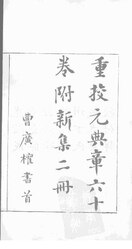 重校元典章六十
卷附新集二冊
曹廣權書首